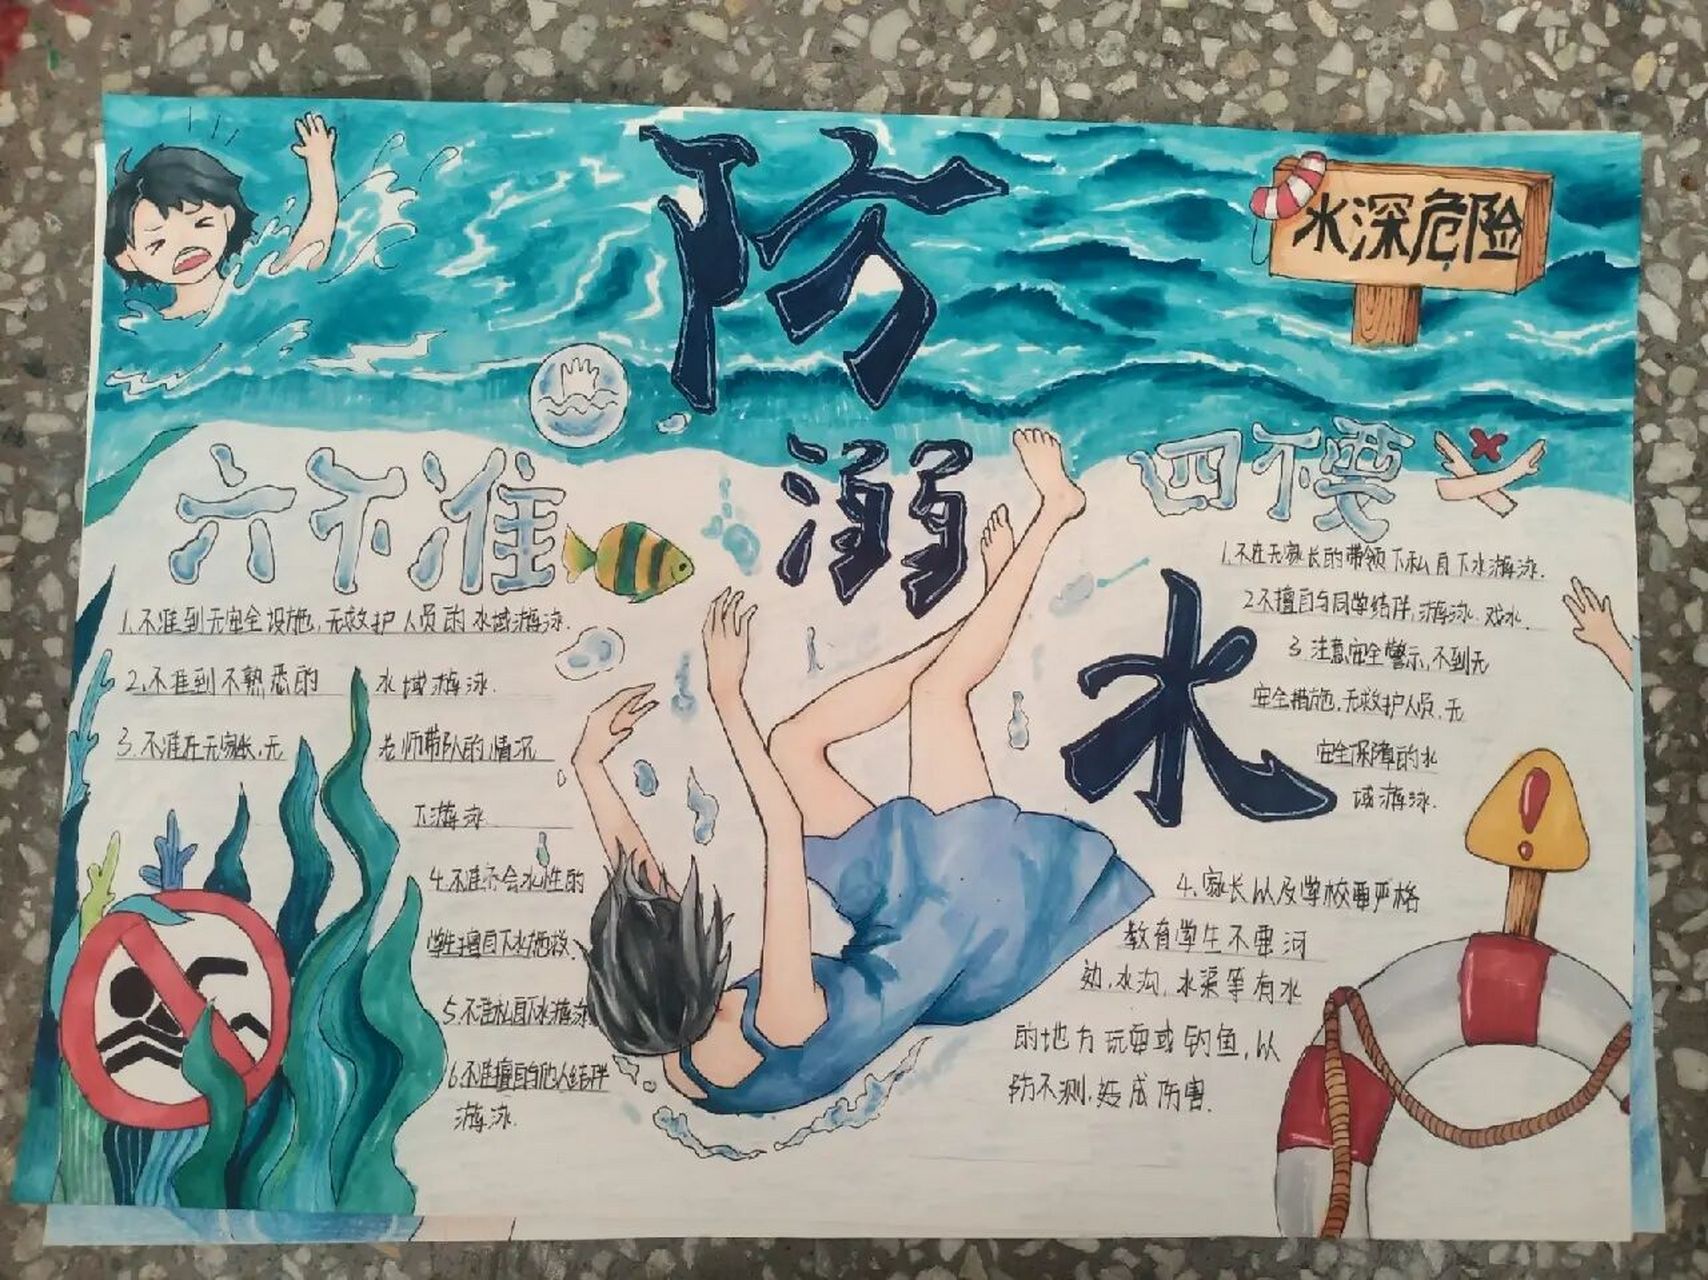 防
溺
水
水深危险
六不准
1.不准到无安全设施,无救护人员的水域游泳.
2.不准到不熟悉的 水域游泳.
3.不准在无家长,无 老师带队的情况
下游泳
4.不准不会水性的
学生擅自下水施救.
5.不准私自下水游泳
6.不准擅自与他人结伴
游泳.
四不要
1.不在无家长的带领下私自下水游泳.
2不擅自与同学结伴,游泳.戏水.
3.注意安全警示,不到无
安全措施,无救护人员,无
安全保障的水
域游泳.
4.家长以及学校要严格
教育学生不要河
边,水沟,水渠等有水
的地方玩耍或钓鱼,以
防不测,造成伤害.